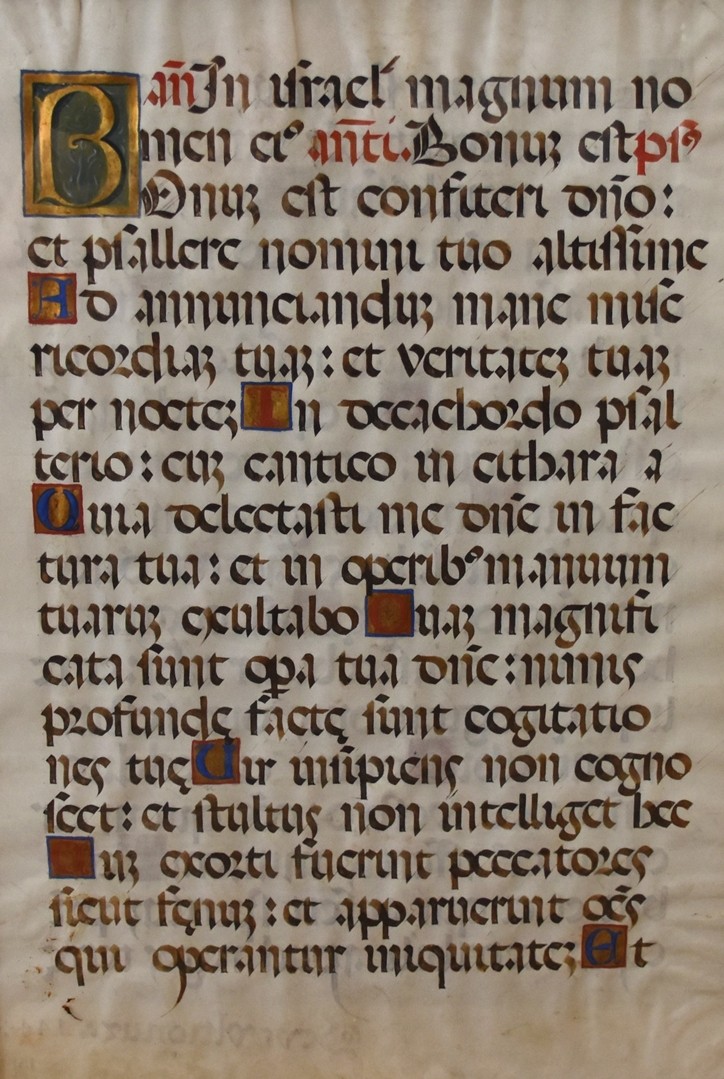 añ In israel magnum no
men eiꝰ anti. Bonuꝫ est ps
BOnuꝫ est confiteri dño:
et psallere nomini tuo altissime
Ad annuncianduꝫ mane mise
ricordiaꝫ tuaꝫ: et veritateꝫ tuaꝫ
per nocteꝫ In decachordo psal
terio: cuꝫ cantico in cithara a
Quia delectasti me dñe in fac
tura tua: et in operibꝰ manuum
tuaruꝫ exultabo uaꝫ magnifi
cata sunt oꝑa tua dñe: nimis
profundę factę sunt cogitatio
nes tuę Uir insipiens non cogno
scet: et stultus non intelliget hec
uꝫ exorti fuerint peccatores
sicut fęnuꝫ: et apparuerint oẽs
qui operantur iniquitateꝫ Et